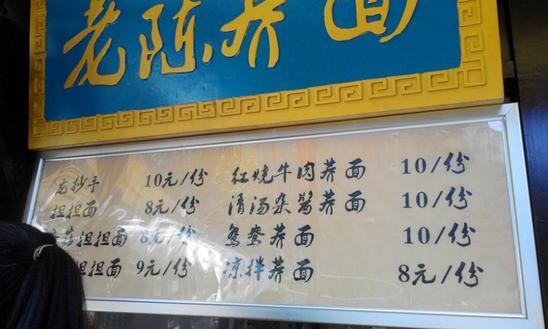 老陈荞面
龙抄手 10元/份 红烧牛肉荞面 10/份
担担面 8元/份 清汤杂酱荞面 10/份
担担面 8元/份 鸳鸯荞面 10/份
担面 9元/份 凉拌荞面 8元/份